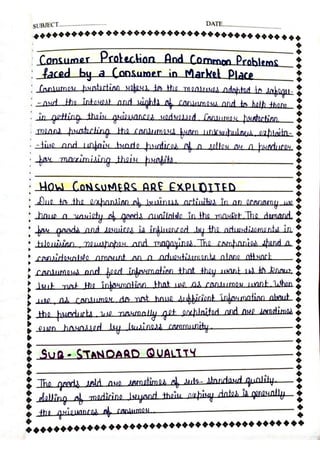 SUBJECT
DATE
Consumer Protection And Common Problems
faced by a Consumer in Market Place
Consumer protection refers to the measures adopted to safegu-
-ard the interest and rights of consumers and to help them
in getting their grievances redressed. Consumer protection
means protecting the consumers from unscrupulous, exploita-
-tive and unfair trade practices of a seller or a producer
for maximising their profits.
HOW CONSUMERS ARE EXPLOITED
Due to the expansion of business activities in an economy we
have a variety of goods available in the market. The demand
for goods and services is influenced by the advertisements in
television, newspaper and magazines. The companies spend a
considerable amount on a advertisements alone attract
consumers and feed information that they want us to know,
but not the information that we as consumer want. When
we, as consumer do not have sufficient information about
the products, we normally get exploited and are sometimes
even harassed by business community.
SUB - STANDARD QUALITY
The goods sold are sometimes of sub-standard quality.
Selling of medicine beyond their expiry dates is generally
the grievances of consumer.